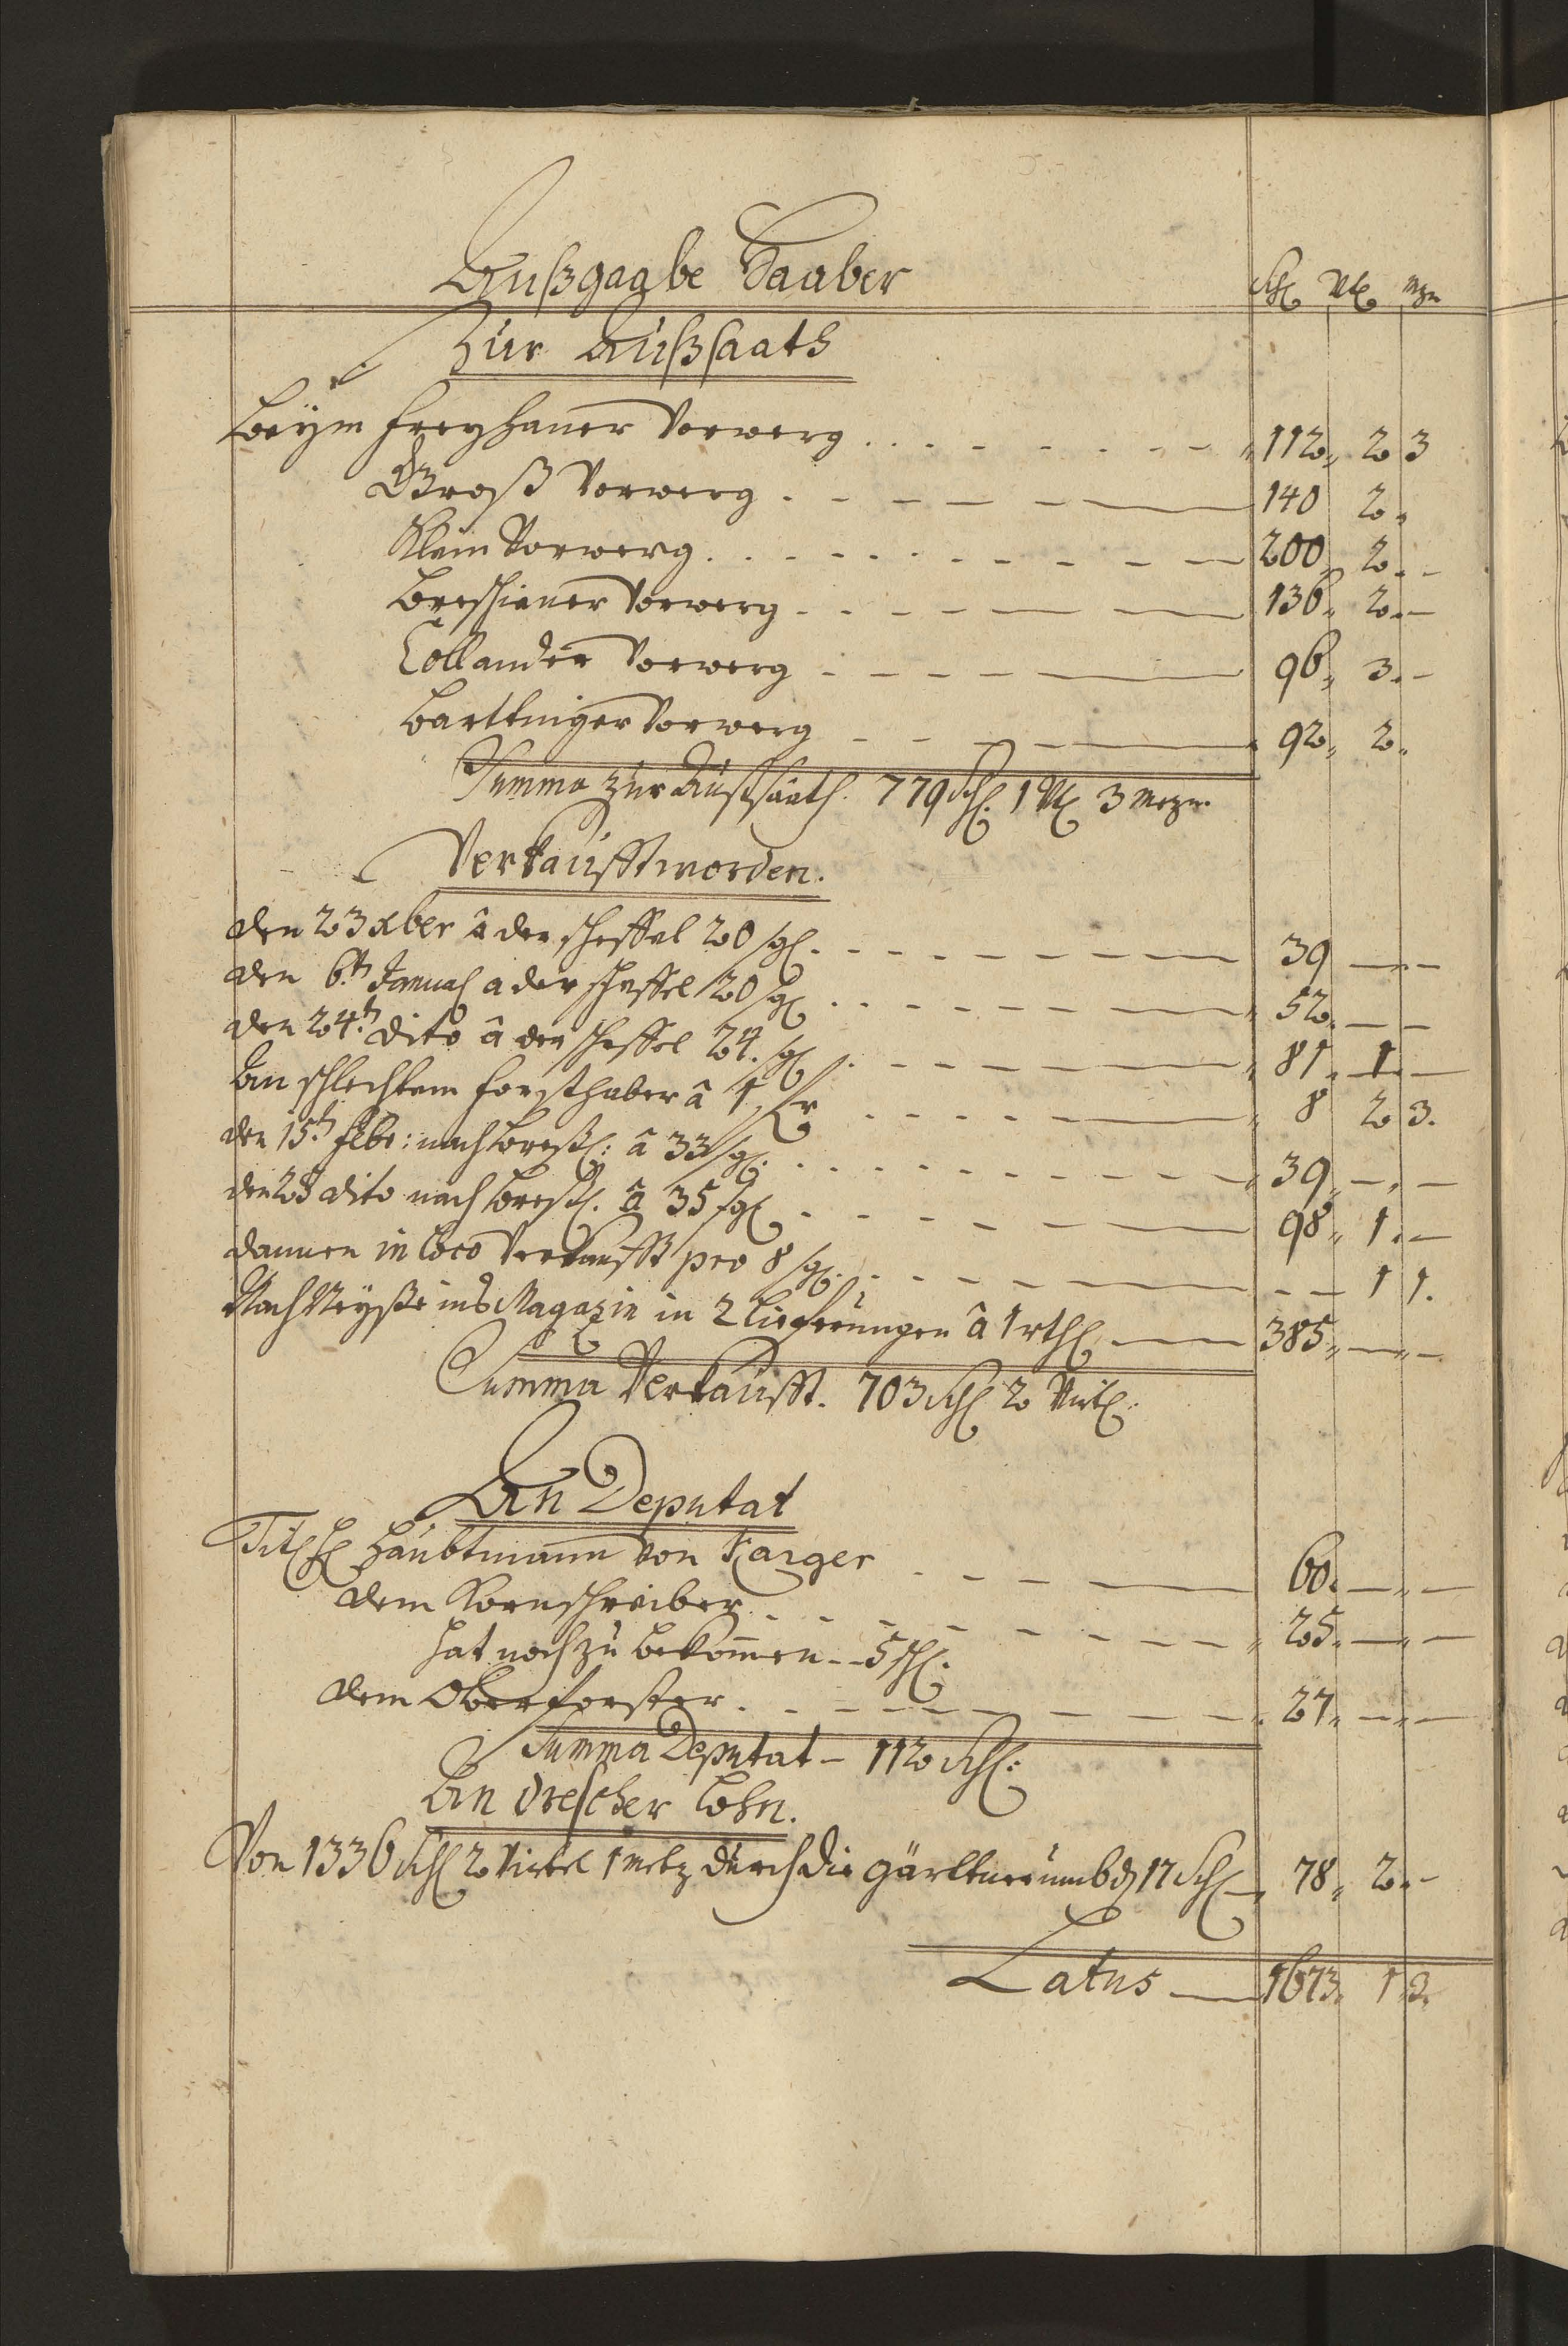 Außgaabe Haaber
Schl Vtl Mzn
Zur Außsaath
Beÿm Freyhaner Vorwerg 112 2 3
Groß Vorwerg 140 2
Klein Vorwerg 200 2 -
Breschiner Vorwerg 136 2 -
Collander Vorwerg 96 3 -
Bartkniger Vorwerg 92 2
Summa zur Außsaath. 779 Schl. 1 Vtl 3 Mezn.
Verkaufft worden.
den 23 xber â der scheffel 20 sgl. 39 - -
den 6.th Januar a der scheffel 20 sgl 52 - -
den 24.th dito â der scheffel 24. sgl 81 1 -
An schlechtem Forsthaber â 1 8 2 3.
den 15th Febr: nach Breßl: â 33 sgl. 39 - -
den 28 dito nach Breßl. â 35 sgl 98 1 -
dannen in Loco Verkaufft pro 8 sgl. - - 1 1.
Nach Neysße ins Magazin in 2 Lieferungen â 1 rthl 385 - -
Summa Verkaufft. 703 Schl 2 Virtl.
An Deputat
Titl H Haubtmann von Karger 60 - -
dem Kornschreiber 25 - -
hat noch zu bekomen -- 5 schl.
dem Oberforster 27 - -
Summa Deputat - 112 Schl:
An drescher Lohn.
Von 1336 Schl 2 Virtel 1 Metz durch die gärttner umb d 17 Schl 78 2 -
Latus 1673 1 2.